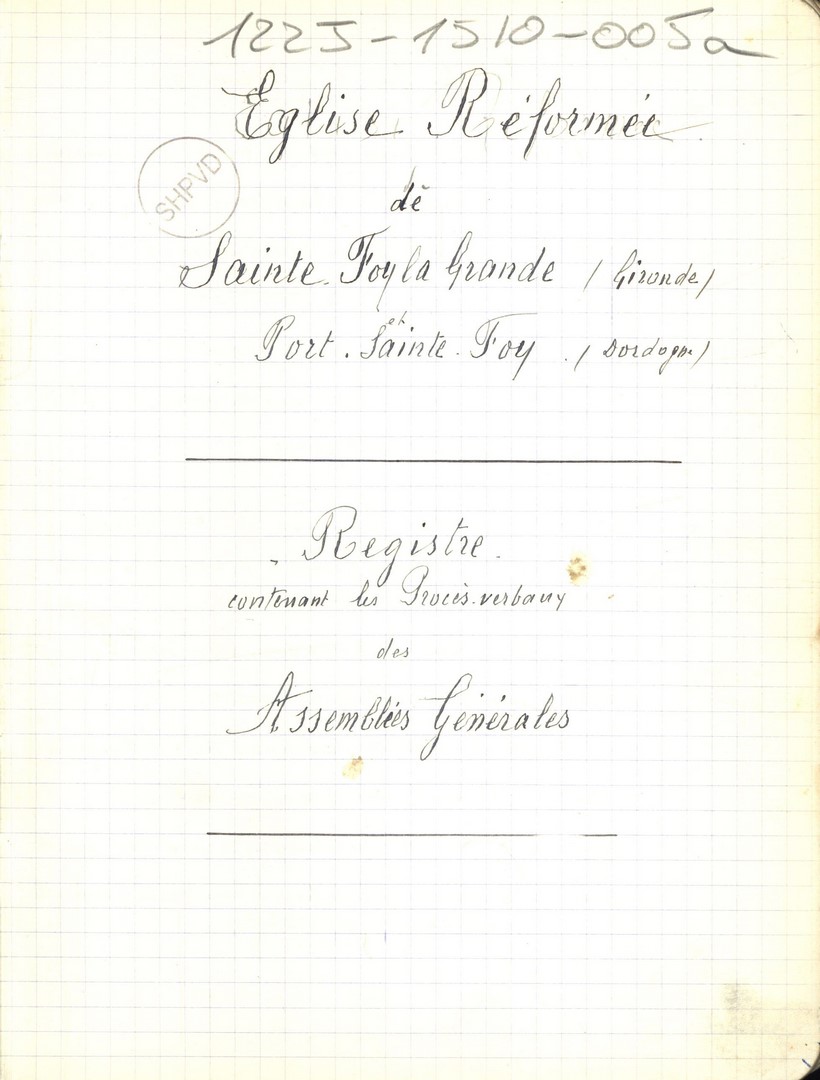 1225-1510-005a
Eglise Réformée
SHPVD
de
Sainte. Foy la Grande (Gironde)
et
Port. Sainte. Foy. (Dordogne)
Registre.
contenant les Procès-verbaux
des
Assemblées Générales